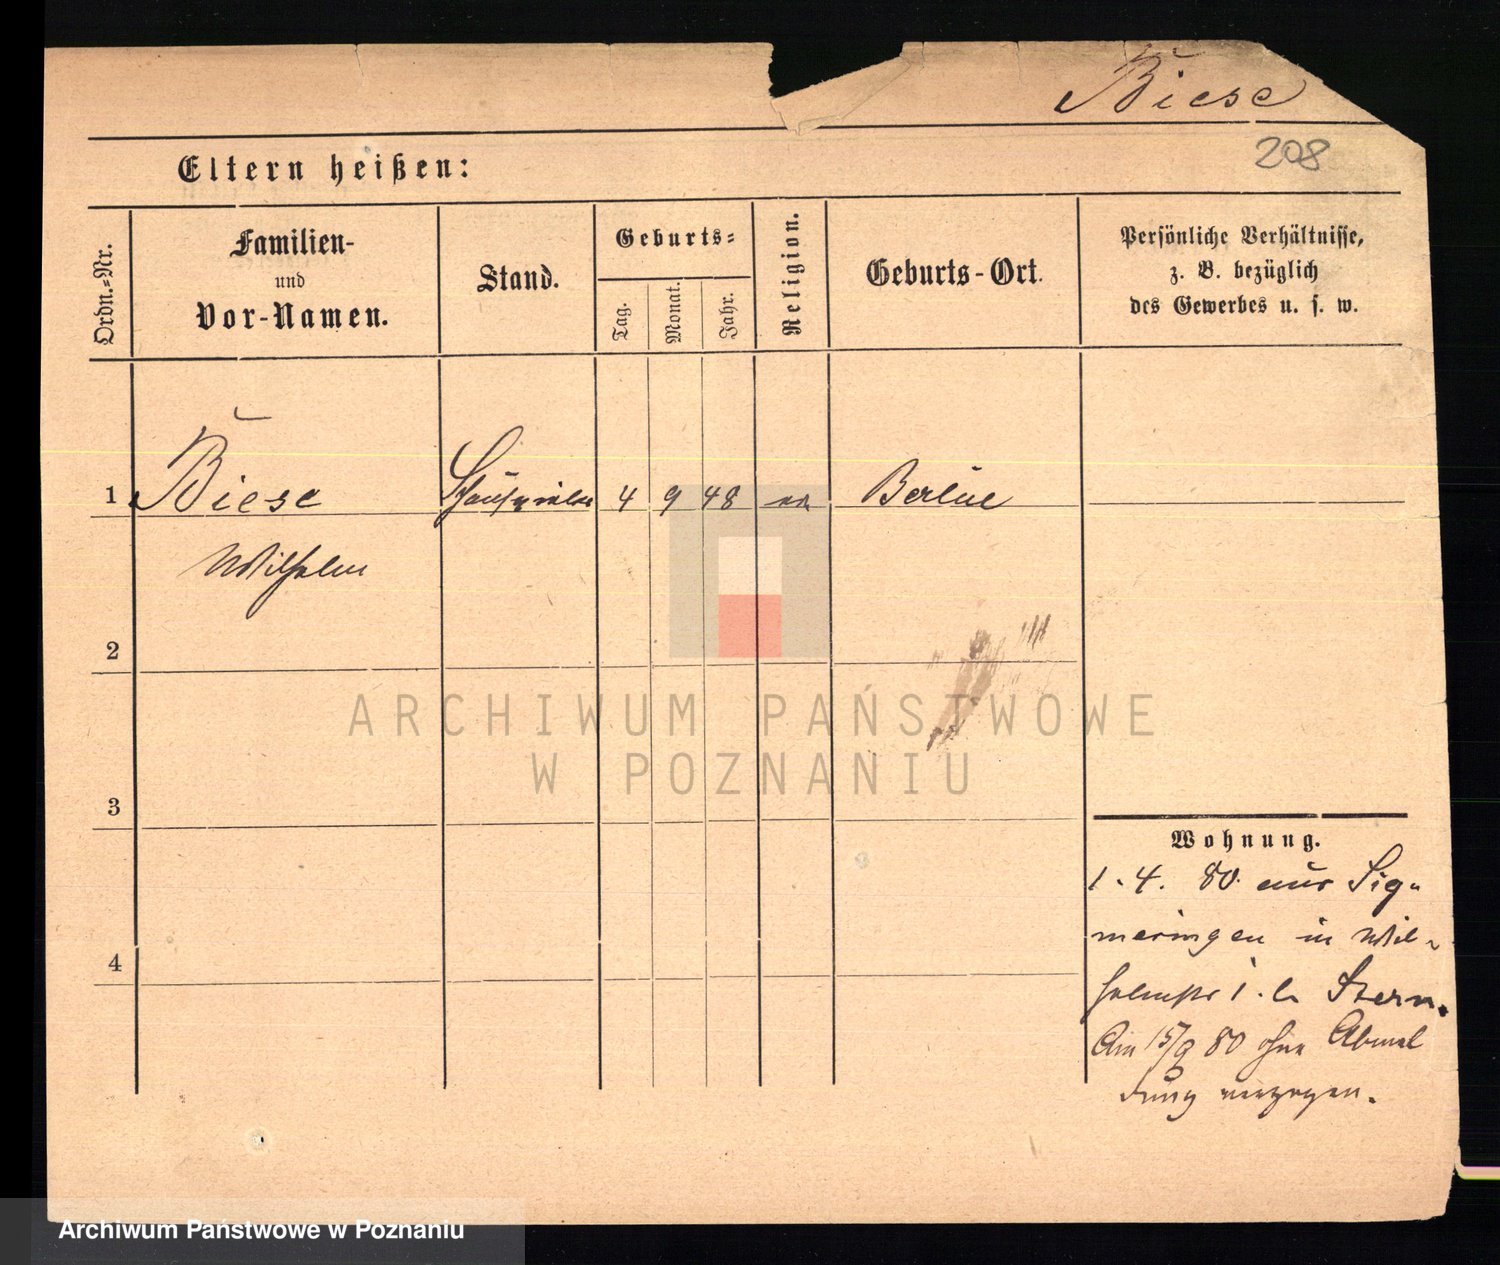 Biese
208
Eltern heißen:
Ordn.=Nr.
Familien-
und
Vor-Namen.
Stand.
Geburts=
Tag.
Monat.
Jahr.
Religion.
Geburts-Ort.
Persönliche Verhältnisse,
z. B. bezüglich
des Gewerbes u. s. w.
1 Biese Schauspieler 4 9 48 ev. Berlin
Wilhelm
2
3
4
Wohnung.
1. 4. 80. aus Sig-
maringen in Wil-
helmstr 1. b. Stern.
Am 15/9 80 ohne Abmel
dung verzogen.
ARCHIWUM PAŃSTWOWE
W POZNANIU
Archiwum Państwowe w Poznaniu